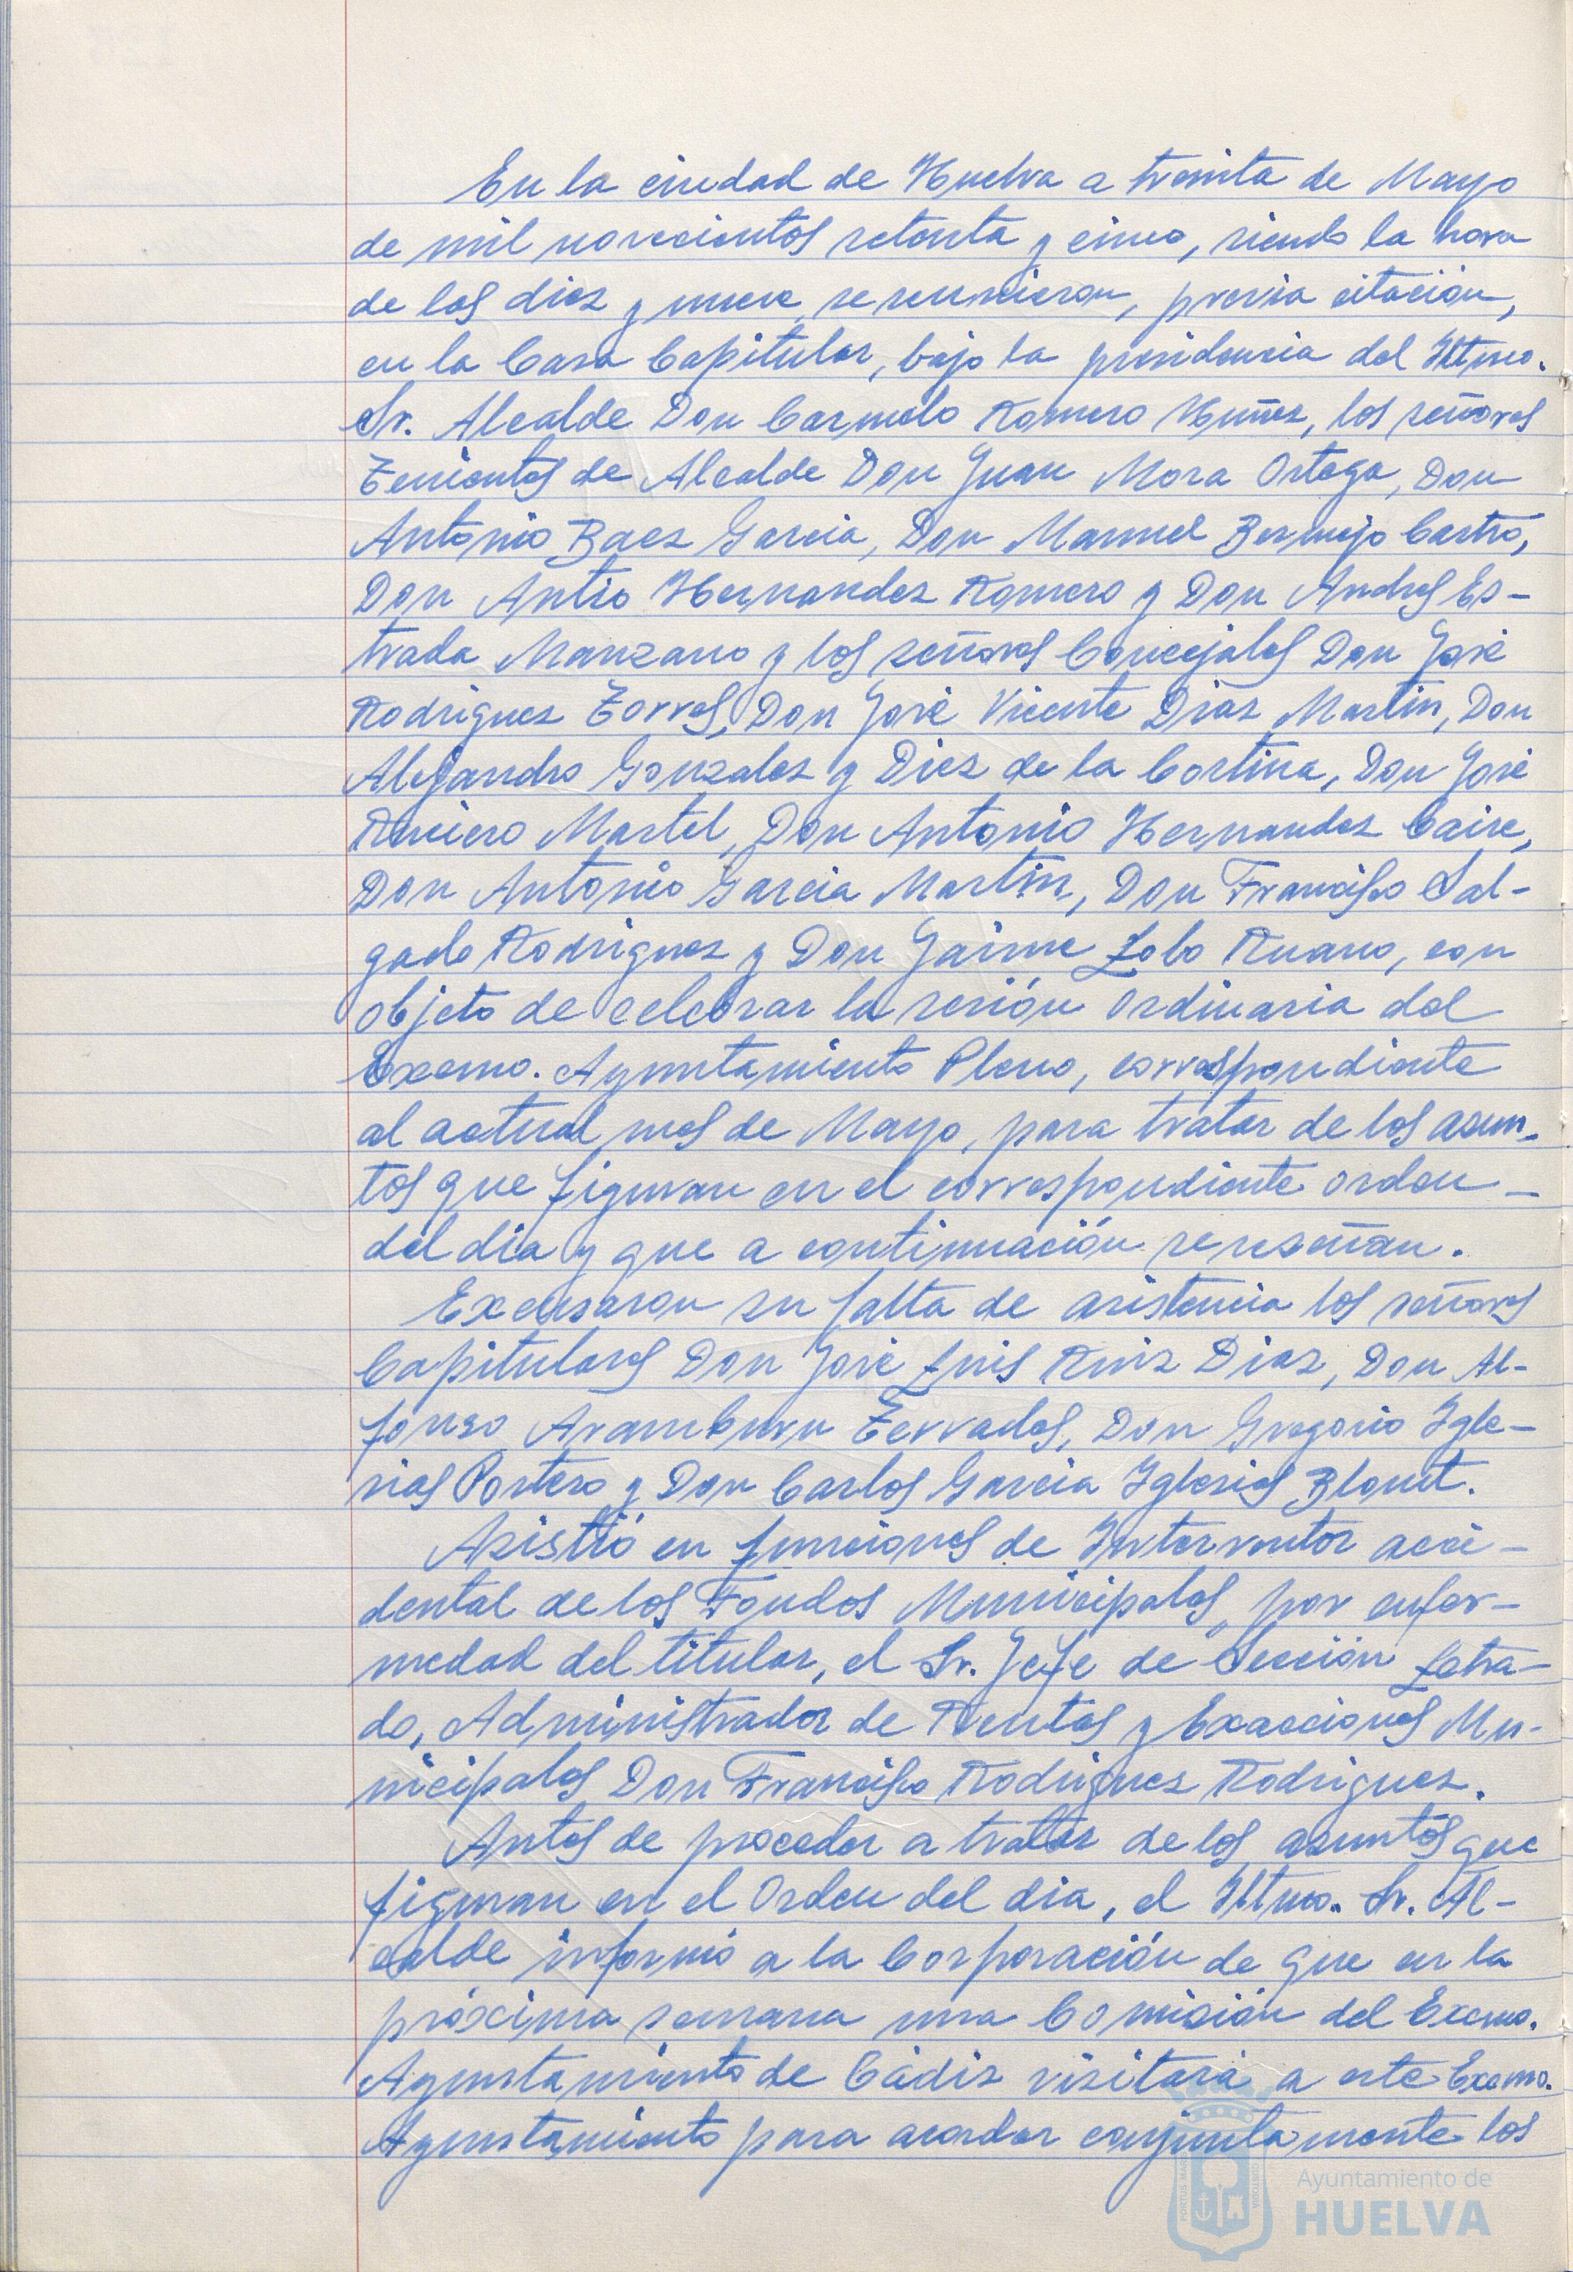 En la ciudad de Huelva a treinta de Mayo
de mil novecientos setenta y cinco, siendo la hora
de las diez y nueve, se reunieron, previa citación,
en la Casa Capitular, bajo la presidencia del Iltmo.
Sr. Alcalde Don Carmelo Romero Nuñez, los señores
Tenientes de Alcalde Don Juan Mora Ortega, Don
Antonio Baez Garcia, Don Manuel Bermejo Castro,
Don Antio Hernandez Romero y Don Andres Es-
trada Manzano y los señores Concejales Don José
Rodriguez Torres, Don José Vicente Diaz Martin, Don
Alejandro Gonzalez y Diez de la Cortina, Don José
Ruciero Martel, Don Antonio Hernandez Caire,
Don Antonio Garcia Martin, Don Francisco Sal-
gado Rodriguez y Don Jaime Lobo Ruano, con
objeto de celebrar la sesión ordinaria del
Excmo. Ayuntamiento Pleno, correspondiente
al actual mes de Mayo, para tratar de los asun-
tos que figuran en el correspondiente orden
del dia y que a continuación se reseñan.
Excusaron su falta de asistencia los señores
Capitulares Don José Luis Ruiz Diaz, Don Al-
fonso Aramburu Terrades, Don Gregorio Igle-
sias Portero y Don Carlos Garcia Iglesias Blanit.
Asistió en funciones de Interventor acci-
dental de los Fondos Municipales, por enfer-
medad del titular, el Sr. Jefe de Sección Letra-
do, Administrador de Rentas y Exacciones Mu-
nicipales Don Francisco Rodriguez Rodriguez.
Antes de proceder a tratar de los asuntos que
figuran en el Orden del dia, el Iltmo. Sr. Al-
calde informó a la Corporación de que en la
próxima semana una Comisión del Excmo.
Ayuntamiento de Cádiz visitará a este Excmo.
Ayuntamiento para acordar conjuntamente los
Ayuntamiento de
HUELVA